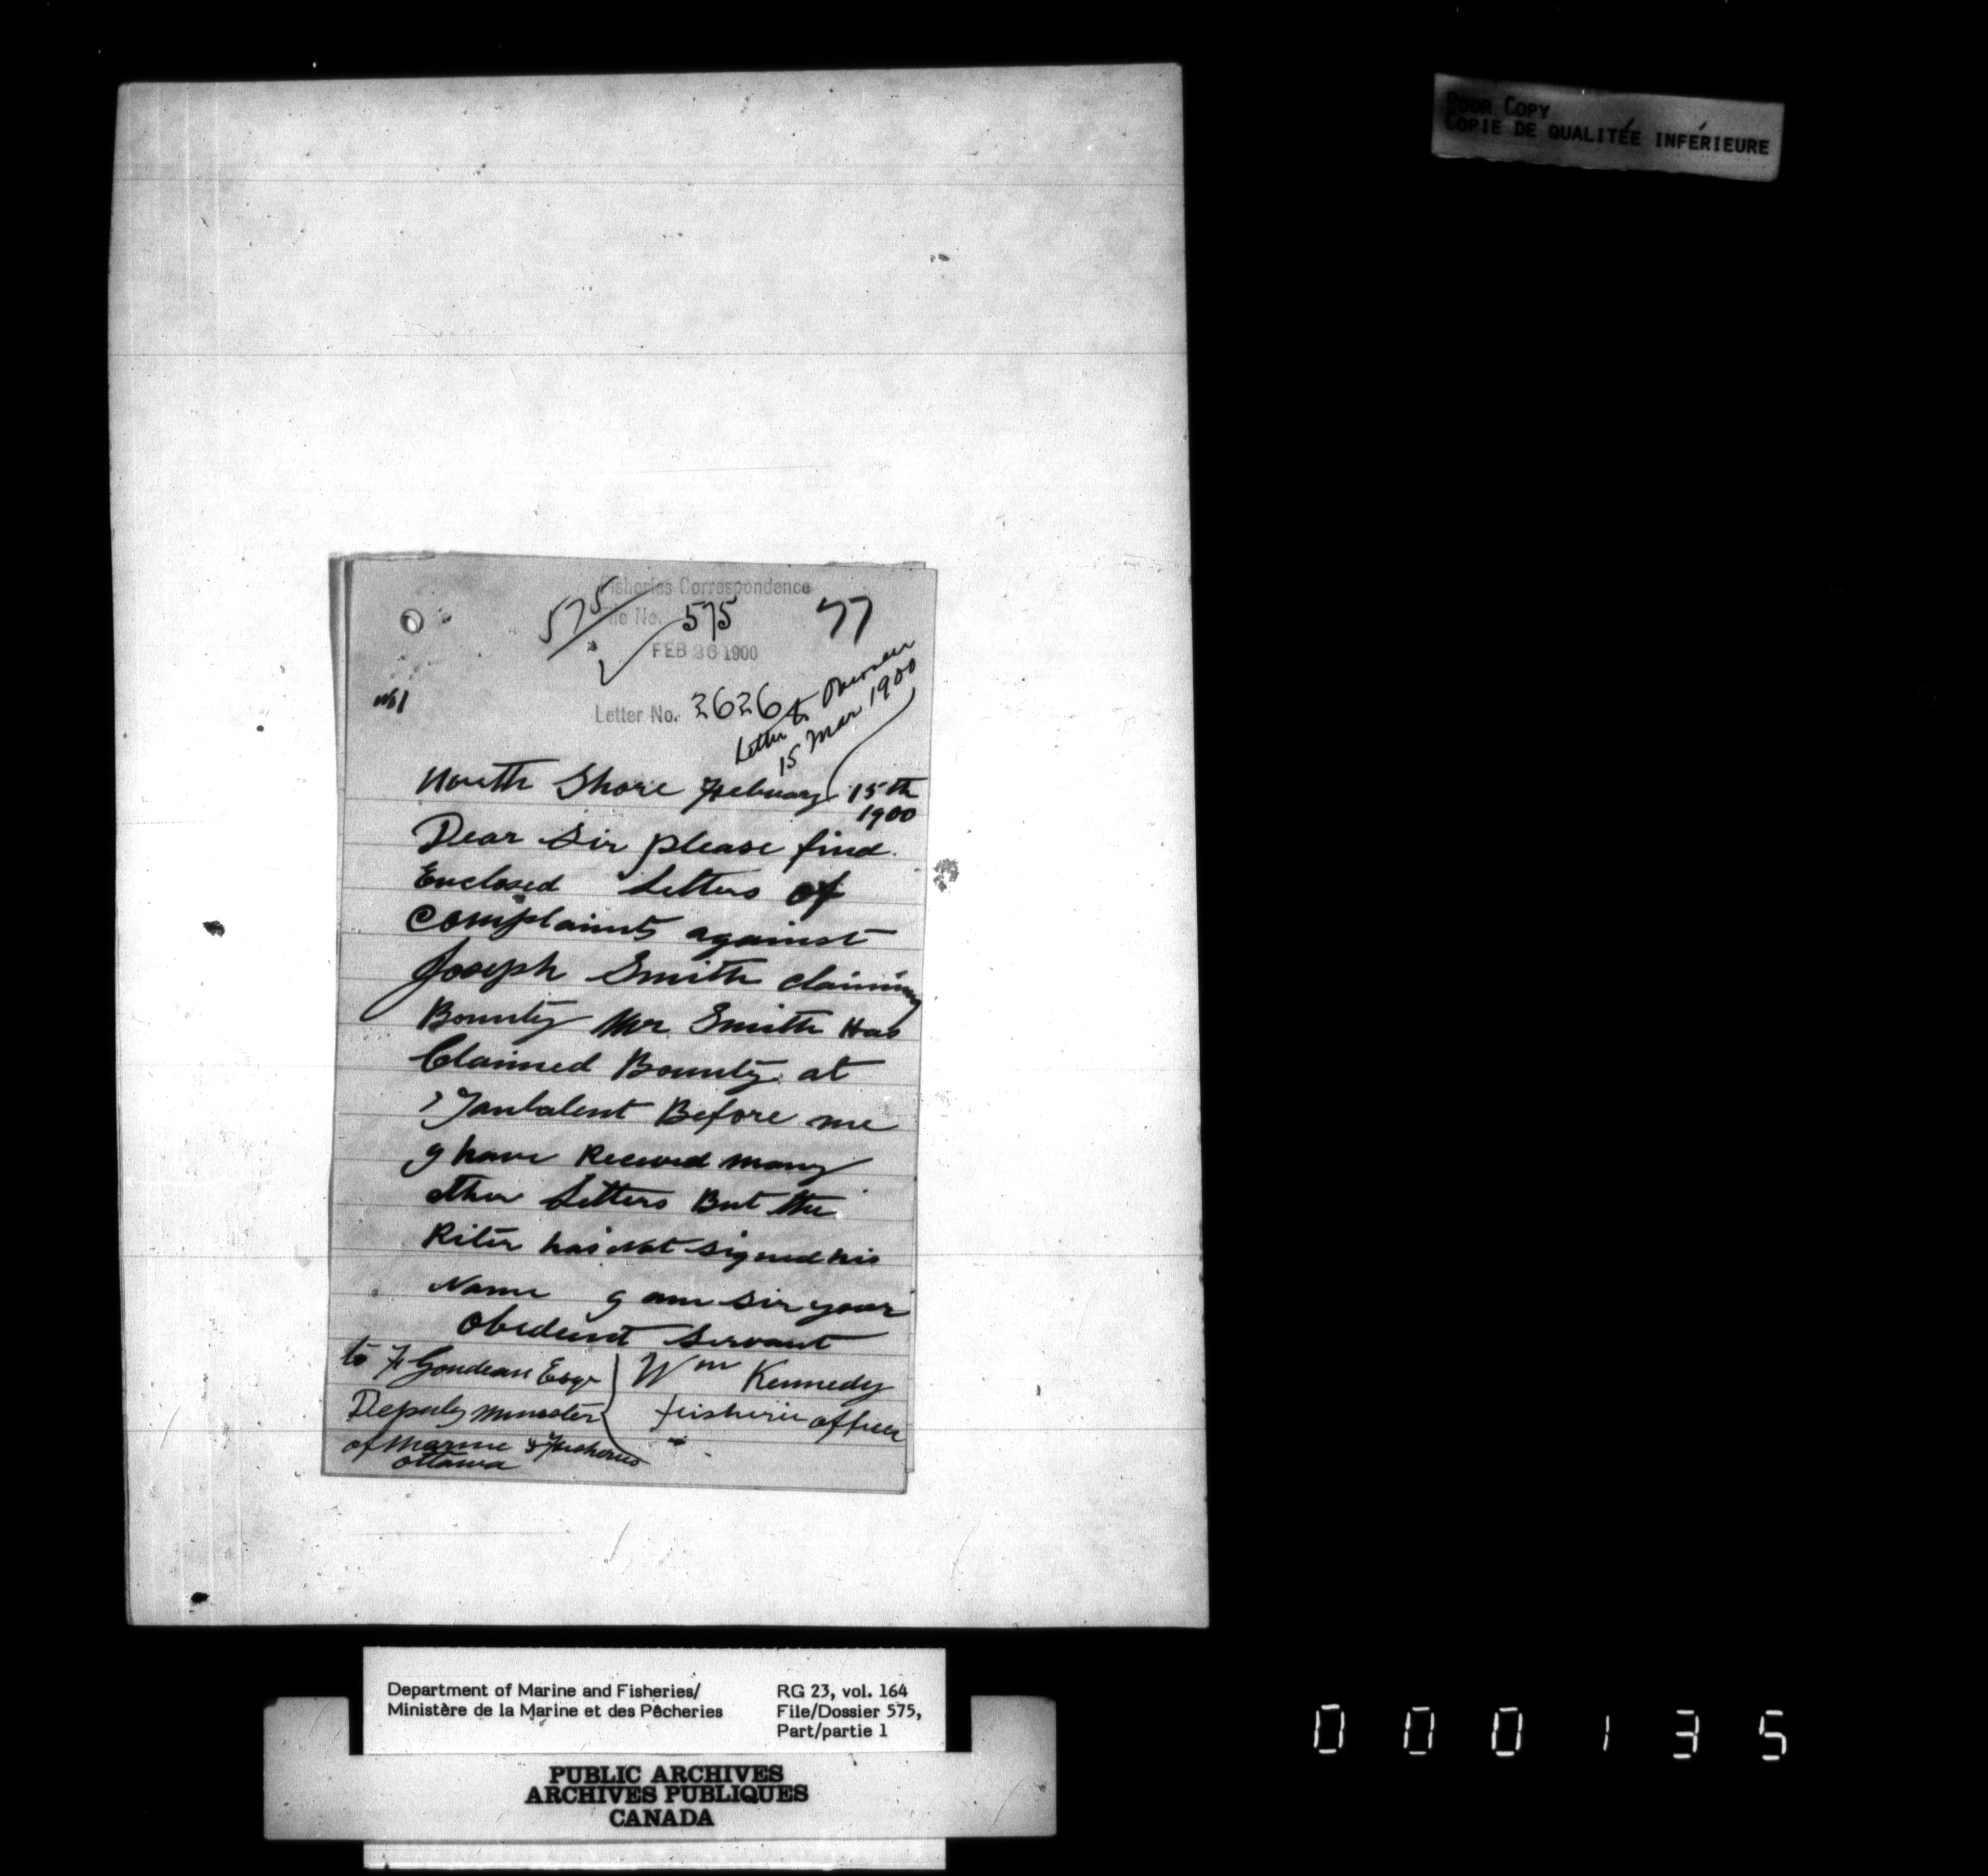 POOR COPY
COPIE DE QUALITÉE INFÉRIEURE
Fisheries Correspondence
575 File No. 575 77
FEB 26 1900
No 1
Letter No. 2626
Letter to
15 Mar 1900
North Shore Februay 15th
1900
Dear Sir please find
Enclosed Letters of
complaints against
Joseph Smith claiming
Bounty Mr Smith Has
Claimed Bounty at
Before me
I have Received many
other Letters But the
Riter has Not signed his
Name I am Sir your
Obedient Servant
to F Gourdeau Esqr Wm Kennedy
Deputy Minester fisherie officer
of Marine & Fisheries
ottawa
Department of Marine and Fisheries/
Ministère de la Marine et des Pêcheries
RG 23, vol. 164
File/Dossier 575,
Part/partie 1
PUBLIC ARCHIVES
ARCHIVES PUBLIQUES
CANADA
000135